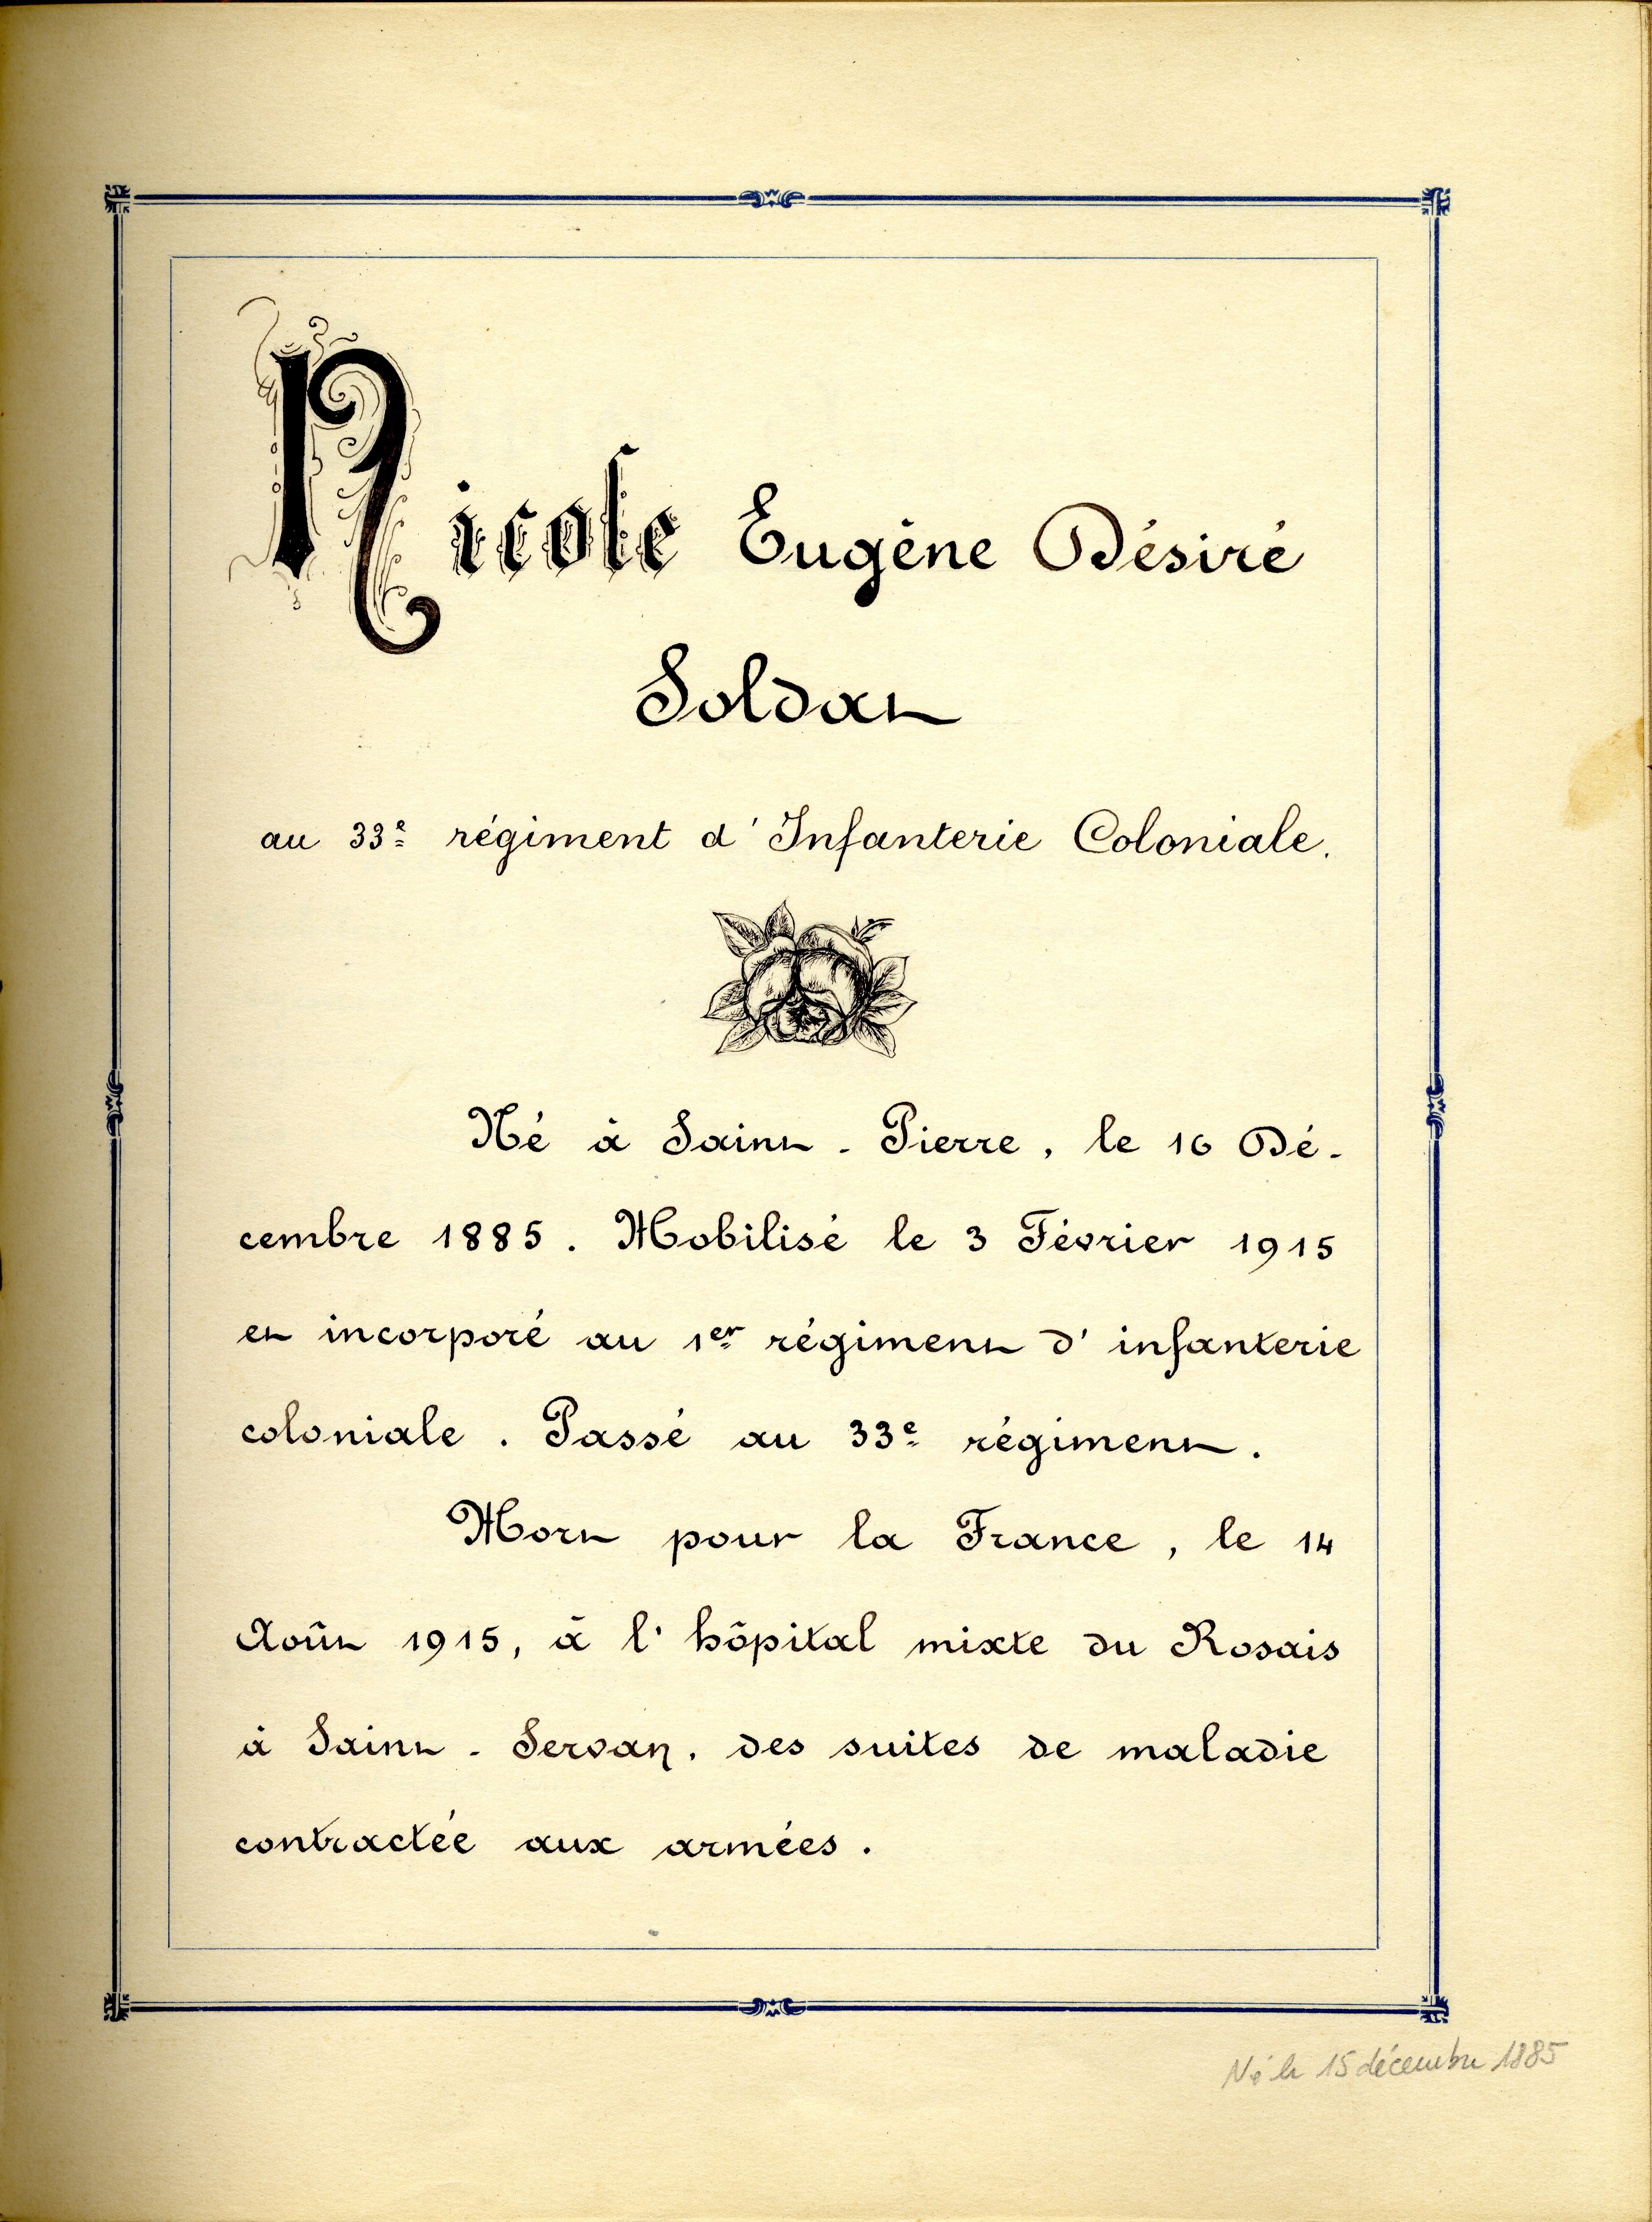 Nicole Eugène Désiré
Soldat
au 33e régiment d'Infanterie Coloniale.
Né à Saint-Pierre, le 16 Dé-
cembre 1885. Mobilisé le 3 Février 1915
et incorporé au 1er régiment d'infanterie
coloniale. Passé au 33e régiment.
Mort pour la France, le 14
Août 1915, à l'hôpital mixte du Rosais
à Saint-Servan, des suites de maladie
contractée aux armées.
Né le 15 décembre 1885